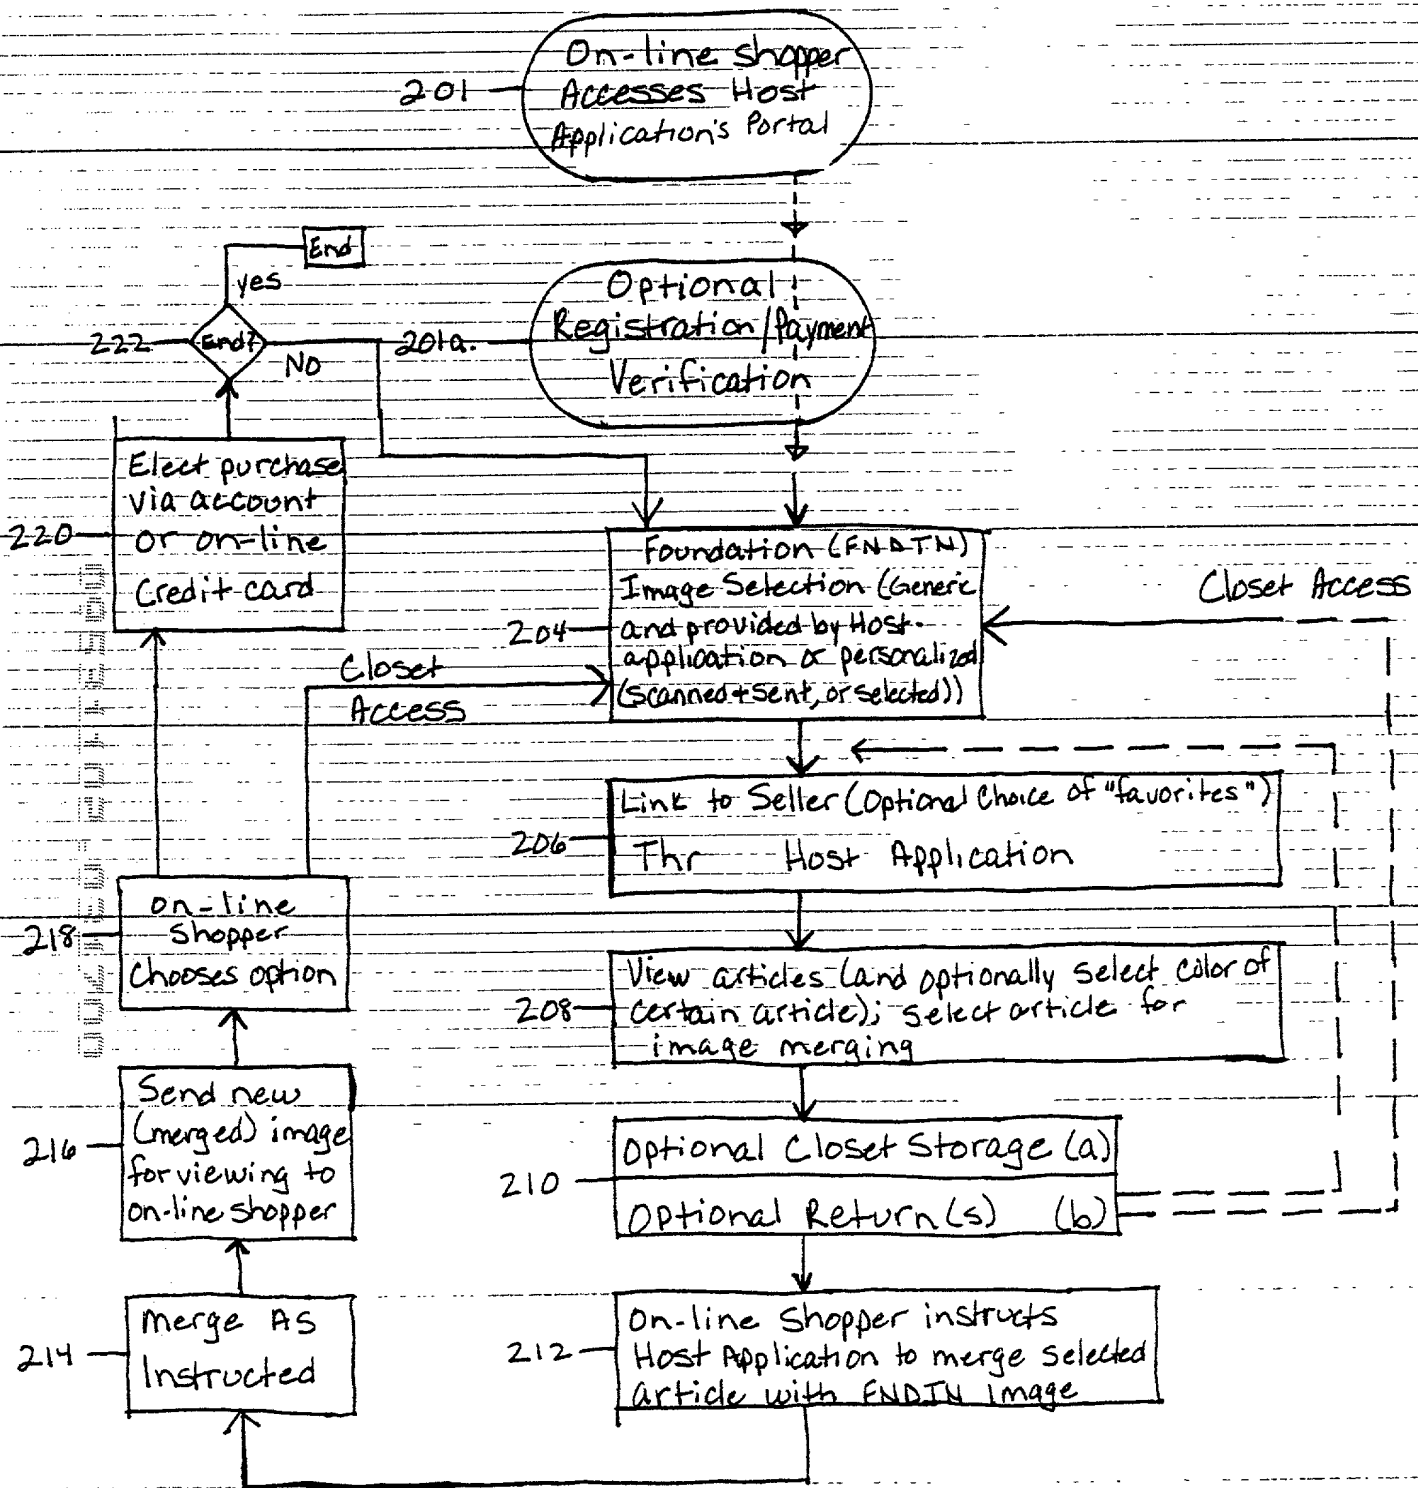 On-line shopper
201
Accesses Host
Application's Portal
End
yes
Optional
222
End?
No
201a.
Registration/Payment
Verification
Elect purchase
via account
220
or on-line
Credit card
Foundation (FNDTN)
Image Selection (Generic
204
and provided by Host
application or personalized
(scanned+sent, or selected))
Closet Access
Closet
Access
Link to Seller (Optional Choice of "favorites")
206
Thr Host Application
on-line
218
Shopper
Chooses option
View articles (and optionally select color of
208
certain article); select article for
image merging
Send new
216
(merged) image
for viewing to
on-line shopper
Optional Closet Storage (a)
210
Optional Return(s) (b)
Merge As
214
Instructed
On-line Shopper instructs
212
Host Application to merge selected
article with FNDTN Image